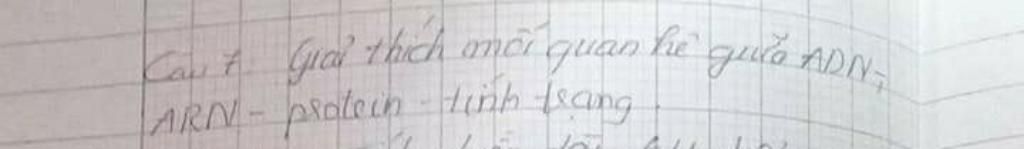 Câu 1. Giải thích mối quan hệ giữa ADN -
ARN - protein - tính trạng